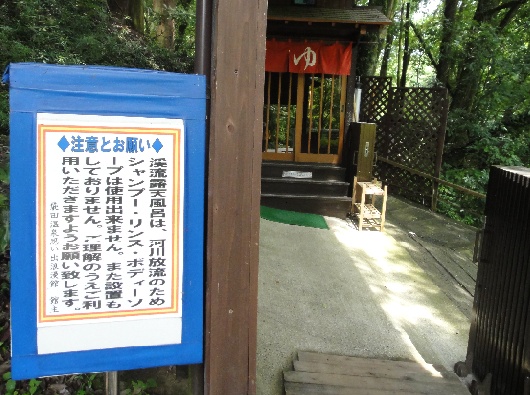 ◆注意とお願い◆
渓流露天風呂は、河川放流のため
シャンプー・リンス・ボディーソ
ープは使用出来ません。また設置も
しておりません。ご理解のうえご利
用いただきますようお願い致します。
袋田温泉思い出浪漫館 館主
ゆ